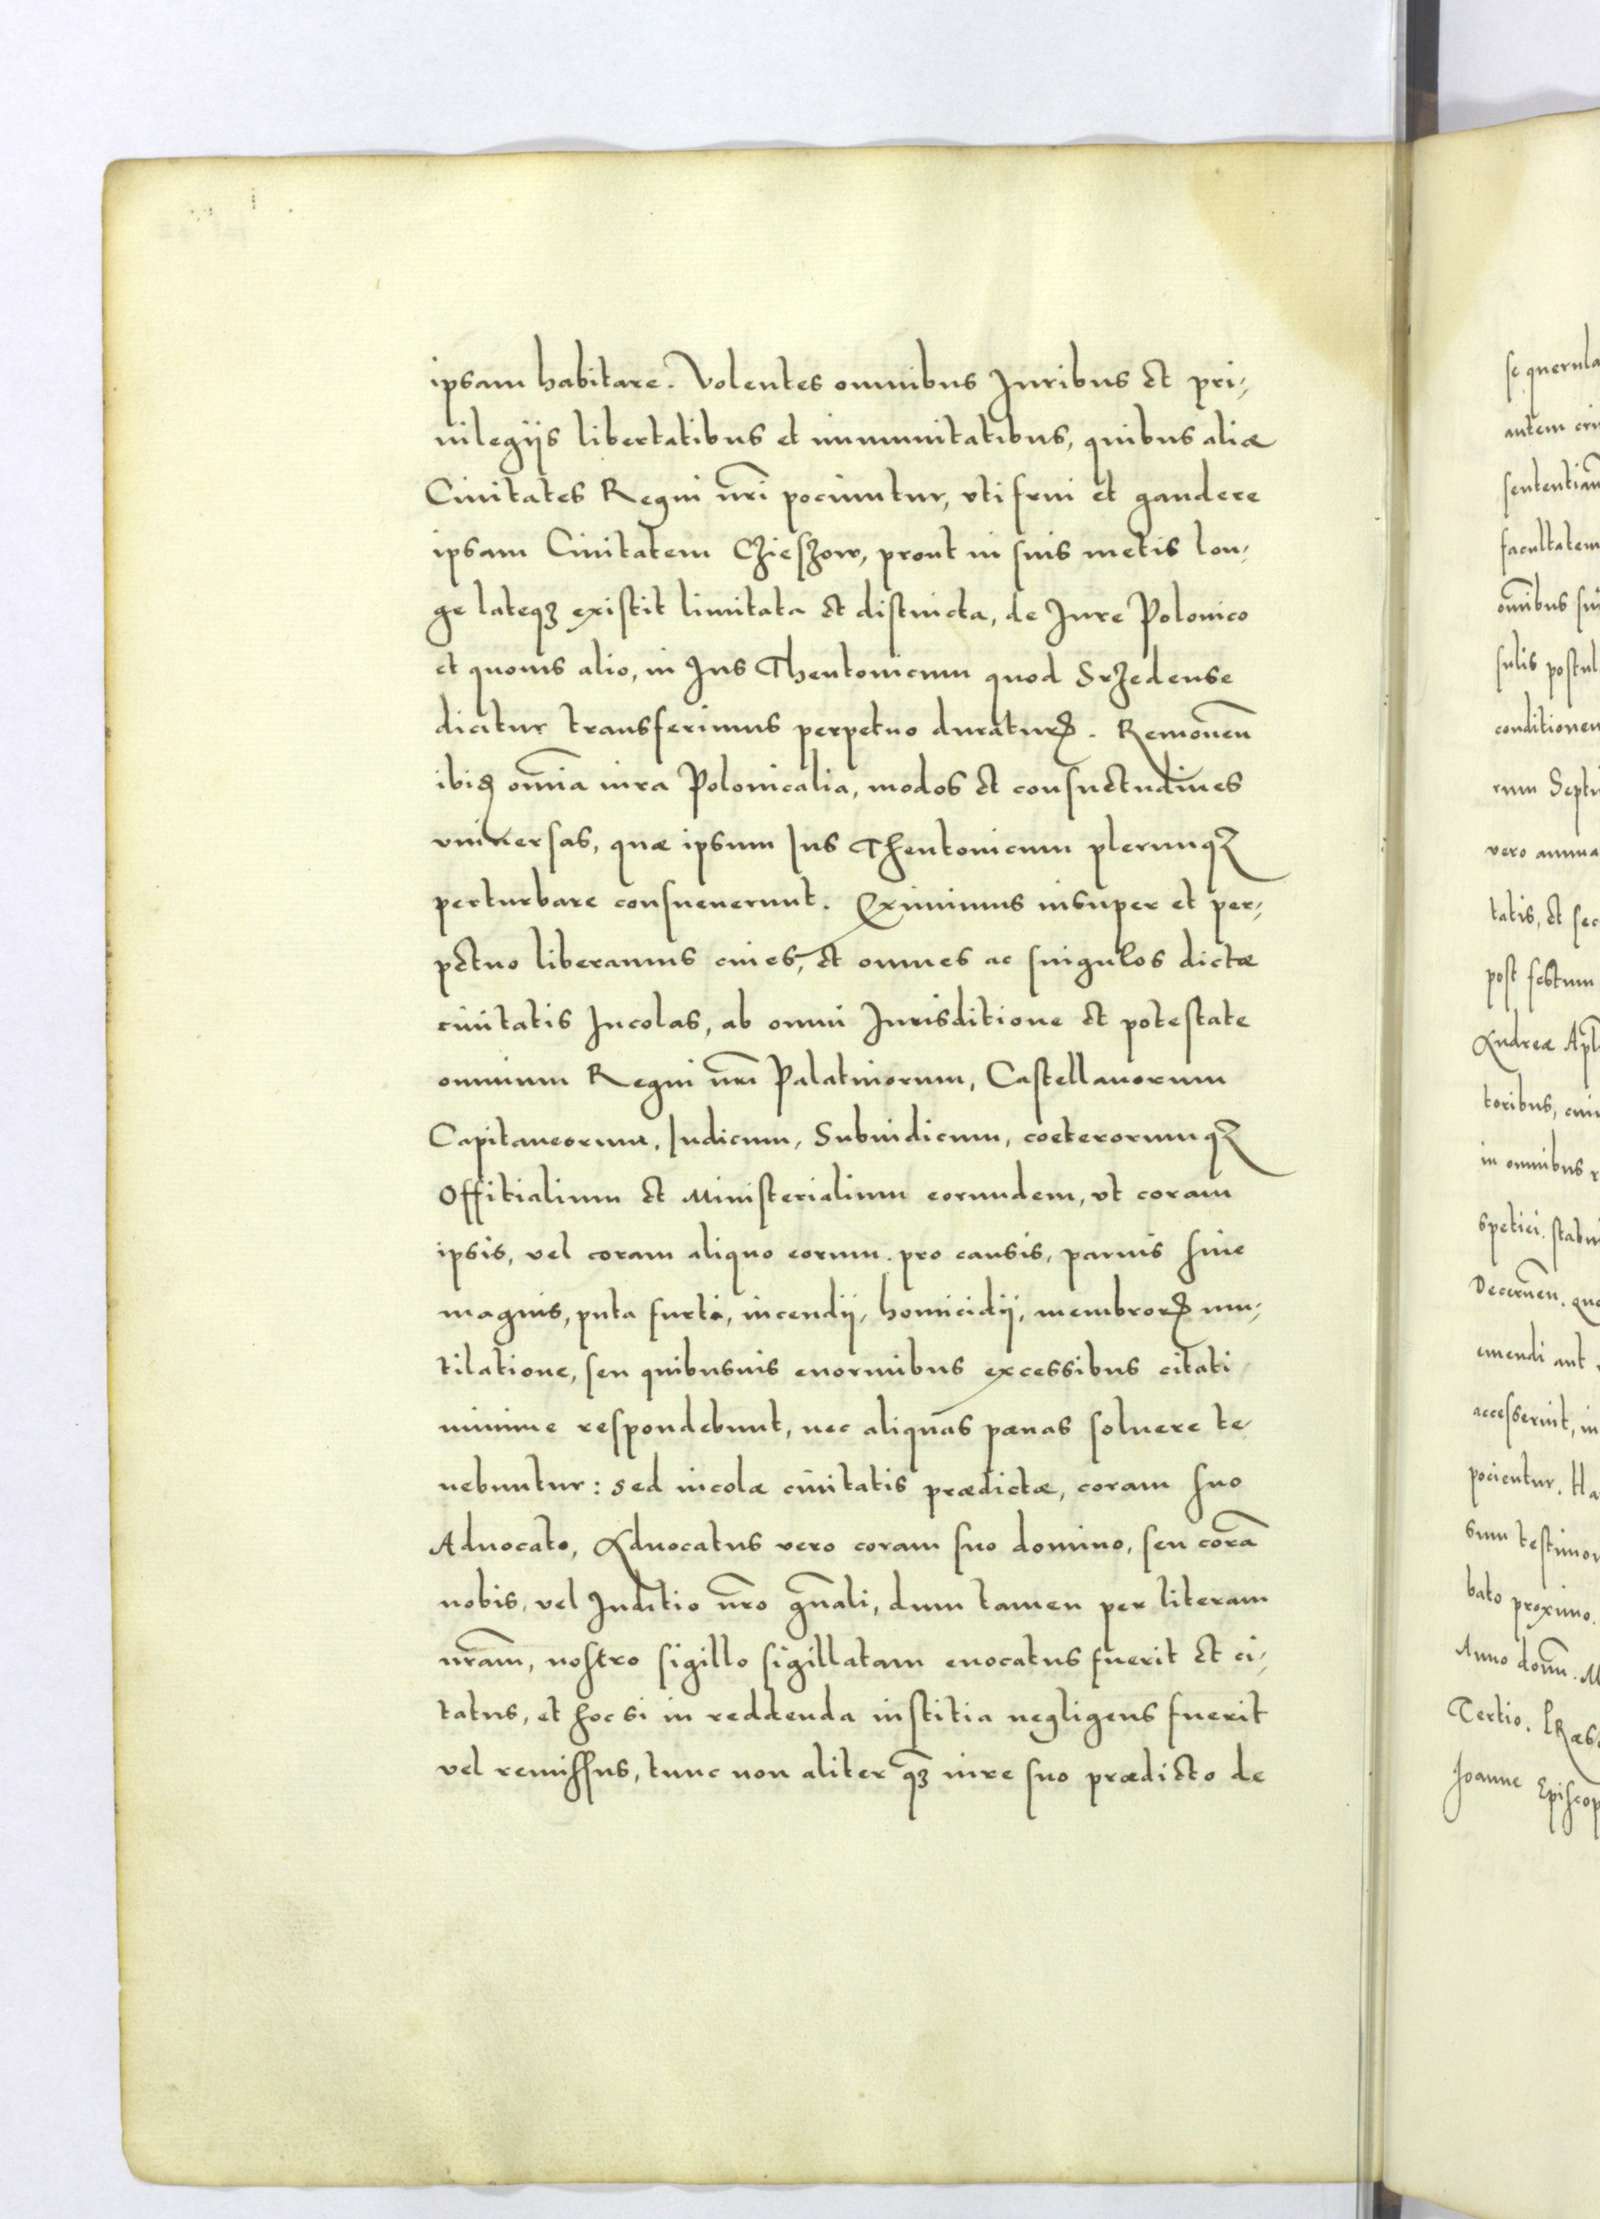 ipsam habitare. Volentes omnibus Juribus et pri-
uilegijs libertatibus et immunitatibus, quibus aliæ
Ciuitates Regni nr̃i pociuntur, vti frui et gaudere
ipsam Ciuitatem Czieszow, prout in suis metis lon-
ge lateqꝫ existit limitata et distincta, de Jure Polonico
et quouis alio, in Jus Theutonicum quod Srzedense
dicitur transferimus perpetuo duraturꝭ. Remoueñ
ibiꝗ om̃ia iura Polonicalia, modos et consuetudines
vniuersas, quæ ipsum Jus Theutonicum plerumqꝫ
perturbare consueuerunt. Eximimus insuper et per-
petuo liberamus ciues, et omnes ac singulos dictæ
ciuitatis Incolas, ab omni Jurisditione et potestate
omnium Regni nr̃i Palatinorum, Castellanorum
Capitaneorum, Iudicum, Subiudicum, coeterorumqꝫ
Offitialium et Ministerialium eorundem, vt coram
ipsis, vel coram aliquo eorum. pro causis, paruis siue
magnis, puta furti, incendij, homicidij, membrorꝭ mu-
tilatione, seu quibusuis enormibus excessibus citati
minime respondebunt, nec aliquas pœnas soluere te-
nebuntur: sed incolæ ciuitatis prædictæ, coram suo
Aduocato, Aduocatus vero coram suo domino, seu corã
nobis, vel Juditio nr̃o gñali, dum tamen per literam
nr̃am, nostro sigillo sigillatam euocatus fuerit et ci-
tatus, et hoc si in reddenda iustitia negligens fuerit
vel remissus, tunc non aliter qꝫ̃ iure suo prædicto de
se querula
sententiam̃
facultatem
om̃ibus sui
sulis postul
conditionem
rum Septi
vero annua
tatis, et sec
post festum
Andreæ Apl̃
toribus, ciui
in omnibus r
spetiei. stabu
Decerneñ. quo
emendi aut
accesserint, in
pocientur. Ha
sum testimon
bato proximo.
Anno domĩ. M
Tertio. Præs
Joanne Episcop